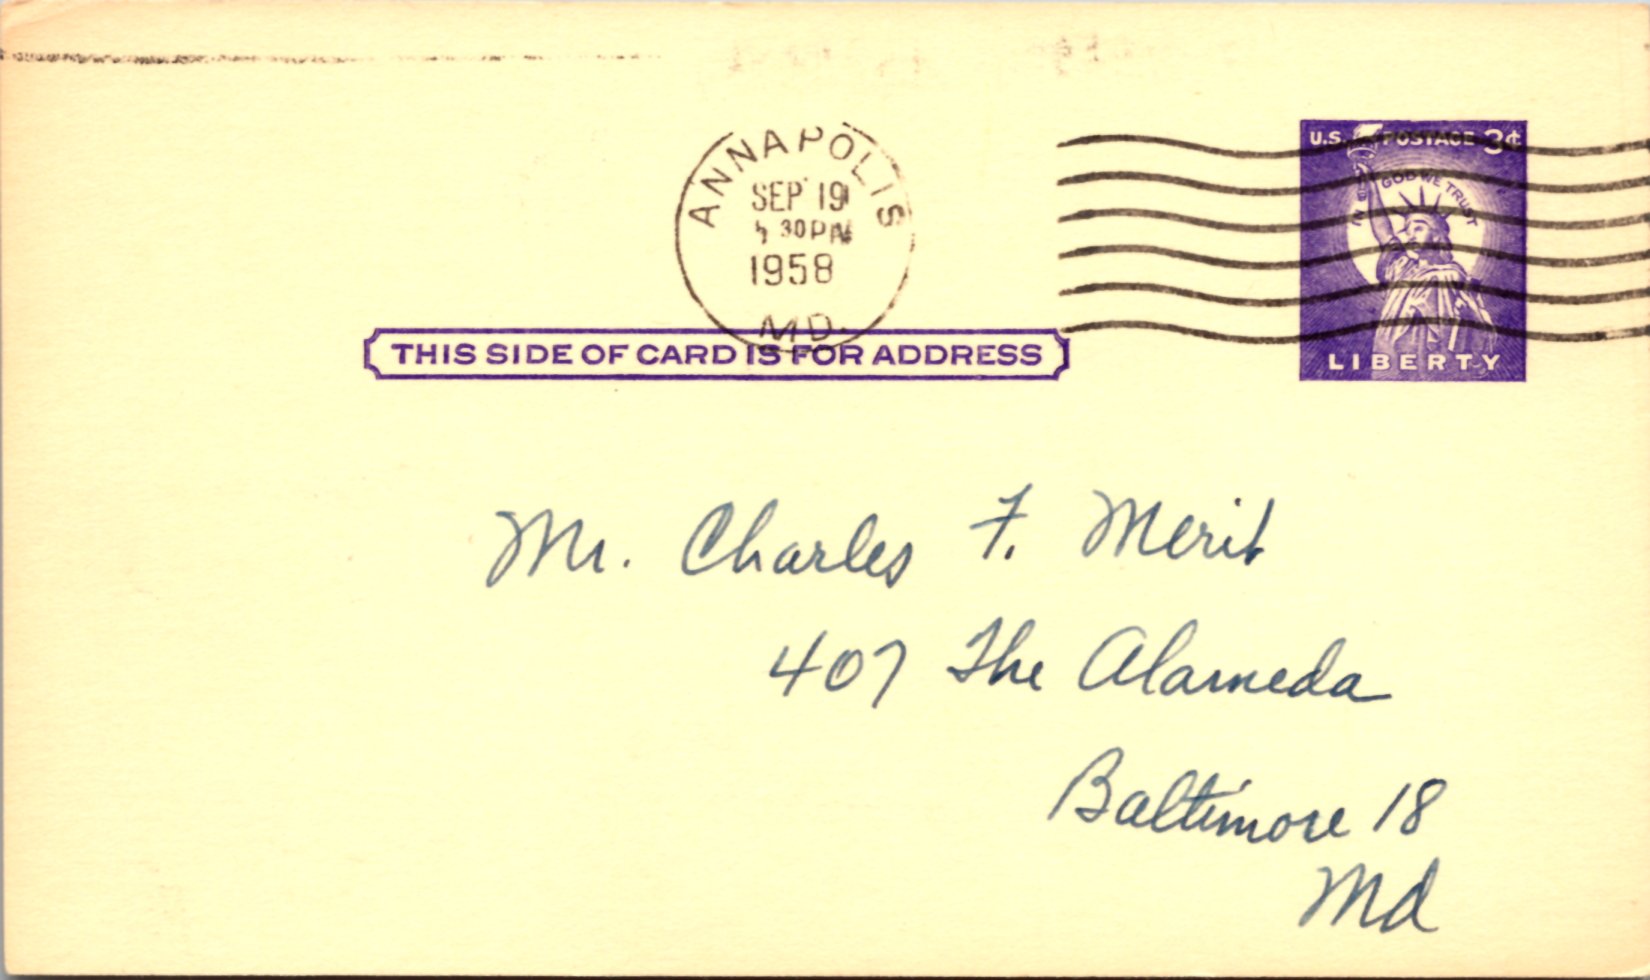 ANNAPOLIS
SEP 19
30 PM
1958
MD.
U.S. POSTAGE 3¢
IN GOD WE TRUST
LIBERTY
THIS SIDE OF CARD IS FOR ADDRESS
Mr. Charles F. Merit
407 The Alameda
Baltimore 18
Md